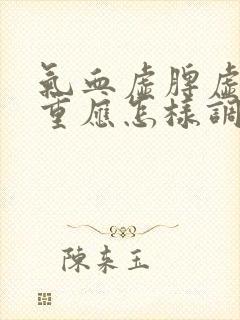 氣血虛脾虛
重應怎樣調
陳來玉